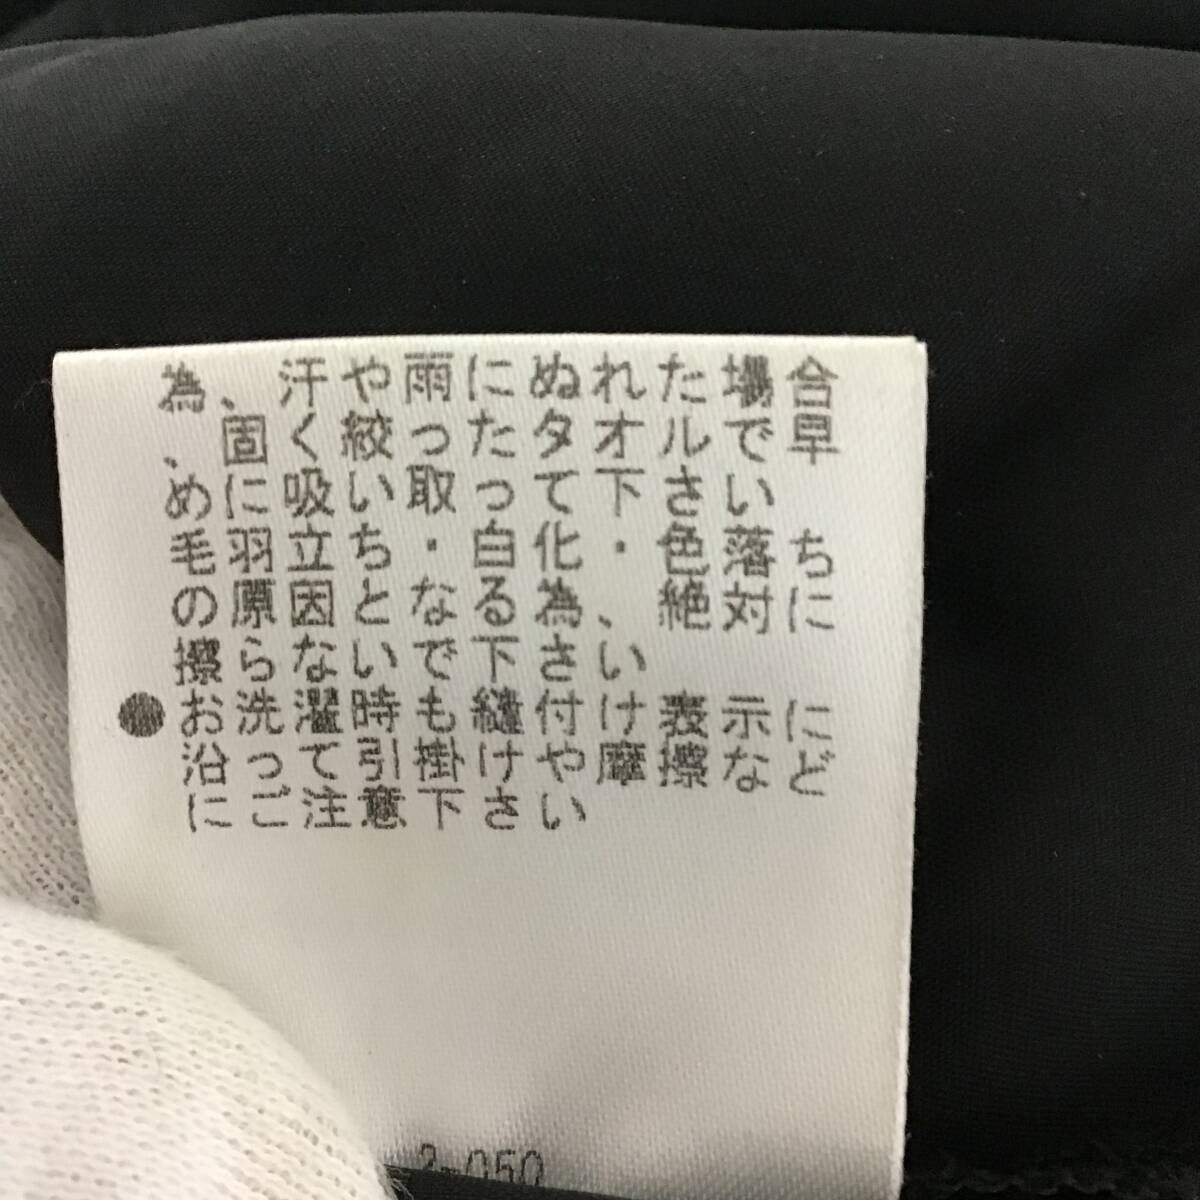 為、汗や雨にぬれた場合
、固く絞ったタオルで早
めに吸い取って下さい
毛羽立ち・白化・色落ち
の原因となる為、絶対に
擦らないで下さい
●お洗濯時も縫付け表示に
沿って引掛けや摩擦など
にご注意下さい
2-050